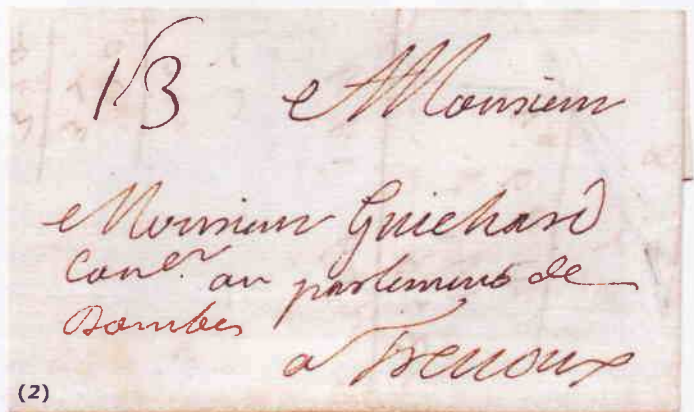 1s3 Monsieur
Monsieur Guichard
Coner au parlement de
Dombes
a Trevoux
(2)